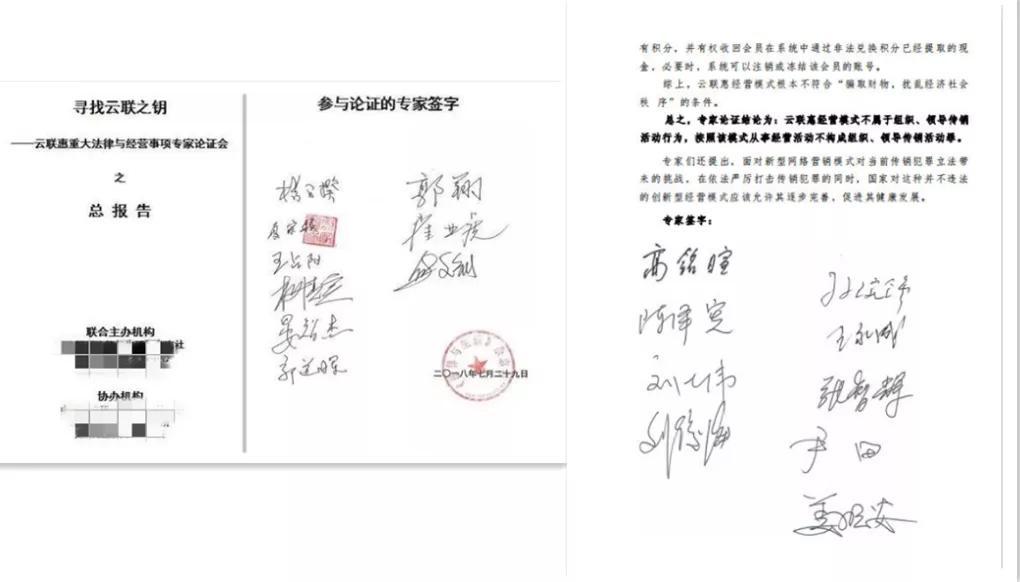 寻找云联之钥
——云联惠重大法律与经营事项专家论证会
之
总 报 告
联合主办机构
社
协办机构
参与论证的专家签字
郭翔
王占阳
晏智杰
郭道晖
二〇一八年七月二十九日
有积分，并有权收回会员在系统中通过非法兑换积分已经提取的现
金，必要时，系统可以注销或冻结该会员的账号。
综上，云联惠经营模式根本不符合“骗取财物，扰乱经济社会
秩 序”的条件。
总之，专家论证结论为：云联惠经营模式不属于组织、领导传销
活动行为，按照该模式从事经营活动不构成组织、领导传销活动罪。
专家们还提出，面对新型网络营销模式对当前传销犯罪立法带
来的挑战，在依法严厉打击传销犯罪的同时，国家对这种并不违法
的创新型经营模式应该允许其逐步完善，促进其健康发展。
专家签字：
高铭暄
陈泽宪
张智辉
尹田
姜明安